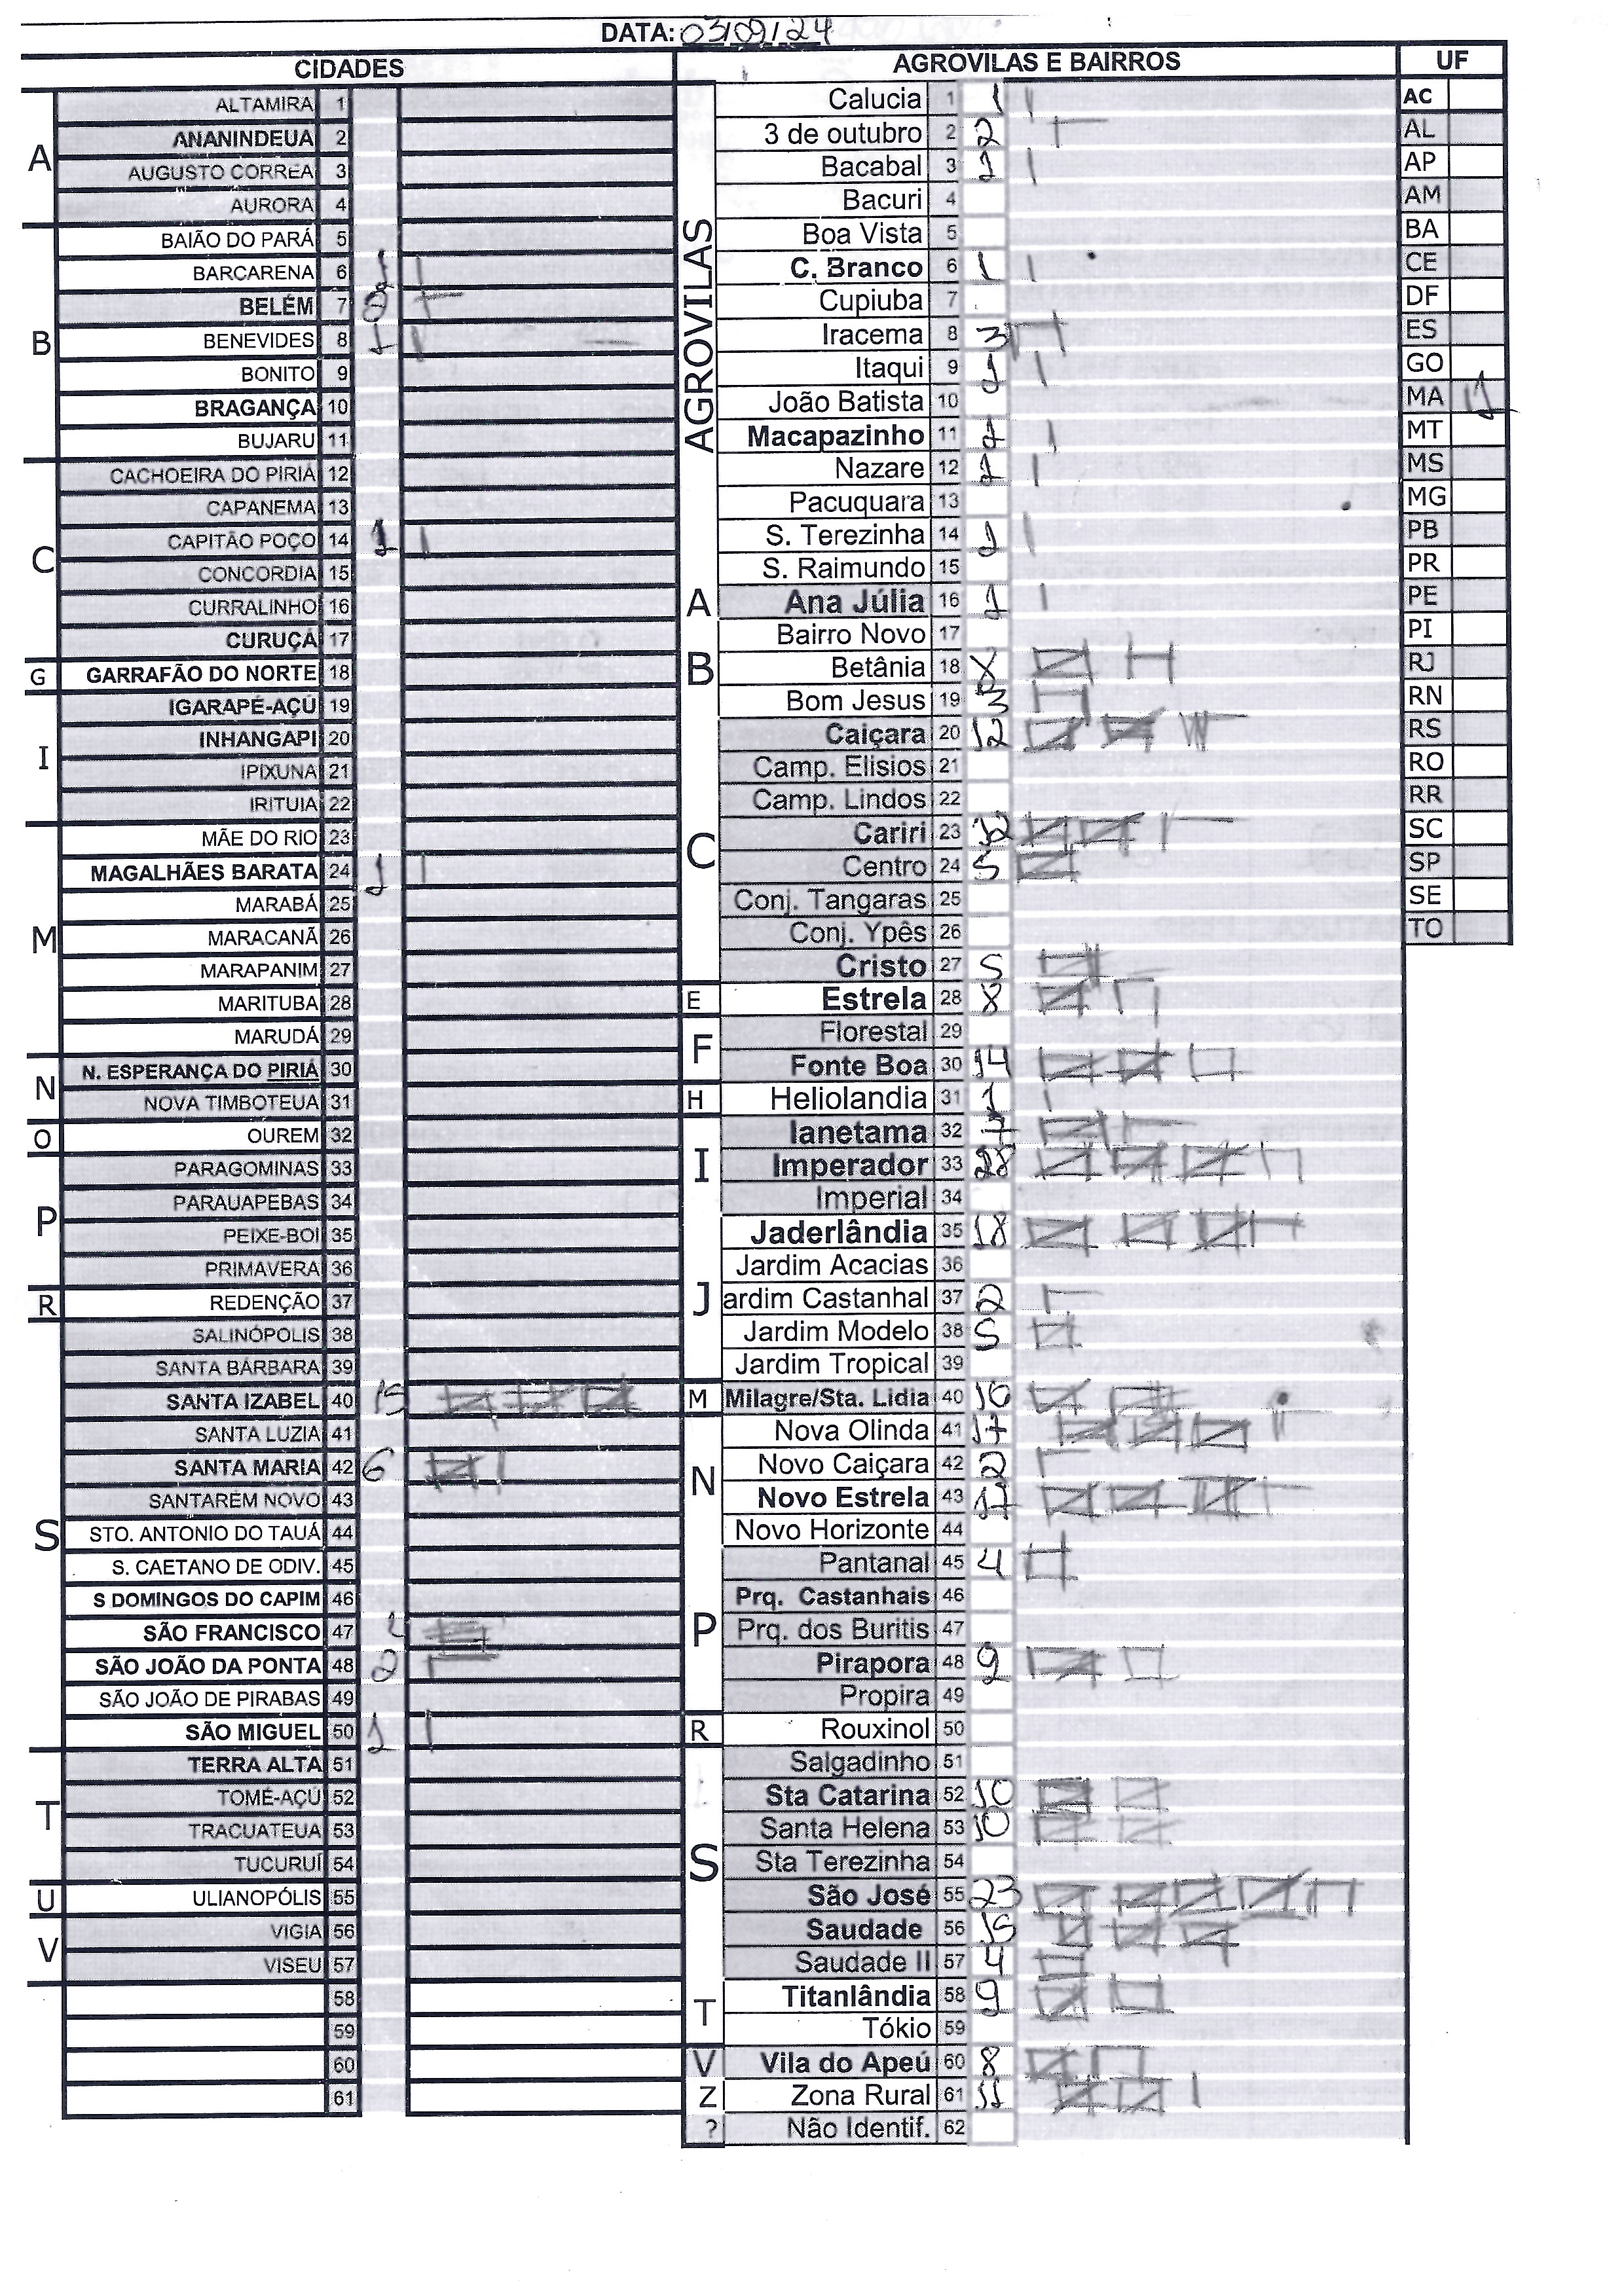 DATA: 03/09/24
CIDADES
A
ALTAMIRA 1
ANANINDEUA 2
AUGUSTO CORREA 3
AURORA 4
B
BAIÃO DO PARÁ 5
BARCARENA 6 1
BELÉM 7 2
BENEVIDES 8 1
BONITO 9
BRAGANÇA 10
BUJARU 11
C
CACHOEIRA DO PIRIÁ 12
CAPANEMA 13
CAPITÃO POÇO 14 1
CONCORDIA 15
CURRALINHO 16
CURUÇÁ 17
G
GARRAFÃO DO NORTE 18
I
IGARAPÉ-AÇÚ 19
INHANGAPI 20
IPIXUNA 21
IRITUIA 22
M
MÃE DO RIO 23
MAGALHÃES BARATA 24 1
MARABÁ 25
MARACANÃ 26
MARAPANIM 27
MARITUBA 28
MARUDÁ 29
N
N. ESPERANÇA DO PIRIÁ 30
NOVA TIMBOTEUA 31
O
OUREM 32
P
PARAGOMINAS 33
PARAUAPEBAS 34
PEIXE-BOI 35
PRIMAVERA 36
R
REDENÇÃO 37
S
SALINÓPOLIS 38
SANTA BÁRBARA 39
SANTA IZABEL 40 15
SANTA LUZIA 41
SANTA MARIA 42 6
SANTARÉM NOVO 43
STO. ANTONIO DO TAUÁ 44
S. CAETANO DE ODIV. 45
S DOMINGOS DO CAPIM 46
SÃO FRANCISCO 47
SÃO JOÃO DA PONTA 48 2
SÃO JOÃO DE PIRABAS 49
SÃO MIGUEL 50 1
T
TERRA ALTA 51
TOMÉ-AÇÚ 52
TRACUATEUA 53
TUCURUÍ 54
U
ULIANOPÓLIS 55
V
VIGIA 56
VISEU 57
58
59
60
61
AGROVILAS E BAIRROS
AGROVILAS
Calucia 1 1
3 de outubro 2 2
Bacabal 3 1
Bacuri 4
Boa Vista 5
C. Branco 6 1
Cupiuba 7
Iracema 8 3
Itaqui 9 1
João Batista 10
Macapazinho 11 1
Nazare 12 1
Pacuquara 13
S. Terezinha 14 1
S. Raimundo 15
A
Ana Júlia 16 1
B
Bairro Novo 17
Betânia 18 8
Bom Jesus 19 3
C
Caiçara 20 12
Camp. Elisios 21
Camp. Lindos 22
Cariri 23 12
Centro 24 5
Conj. Tangaras 25
Conj. Ypês 26
Cristo 27 5
E
Estrela 28 8
F
Florestal 29
Fonte Boa 30 14
H
Heliolandia 31 1
I
Ianetama 32 7
Imperador 33 18
Imperial 34
J
Jaderlândia 35 18
Jardim Acacias 36
ardim Castanhal 37 2
Jardim Modelo 38 5
Jardim Tropical 39
M
Milagre/Sta. Lidia 40 10
N
Nova Olinda 41 17
Novo Caiçara 42 2
Novo Estrela 43 17
Novo Horizonte 44
P
Pantanal 45 4
Prq. Castanhais 46
Prq. dos Buritis 47
Pirapora 48 9
Propira 49
R
Rouxinol 50
S
Salgadinho 51
Sta Catarina 52 10
Santa Helena 53 10
Sta Terezinha 54
São José 55 23
Saudade 56 15
Saudade II 57 4
T
Titanlândia 58 9
Tókio 59
V
Vila do Apeú 60 8
Z
Zona Rural 61 11
?
Não Identif. 62
UF
AC
AL
AP
AM
BA
CE
DF
ES
GO
MA 1
MT
MS
MG
PB
PR
PE
PI
RJ
RN
RS
RO
RR
SC
SP
SE
TO